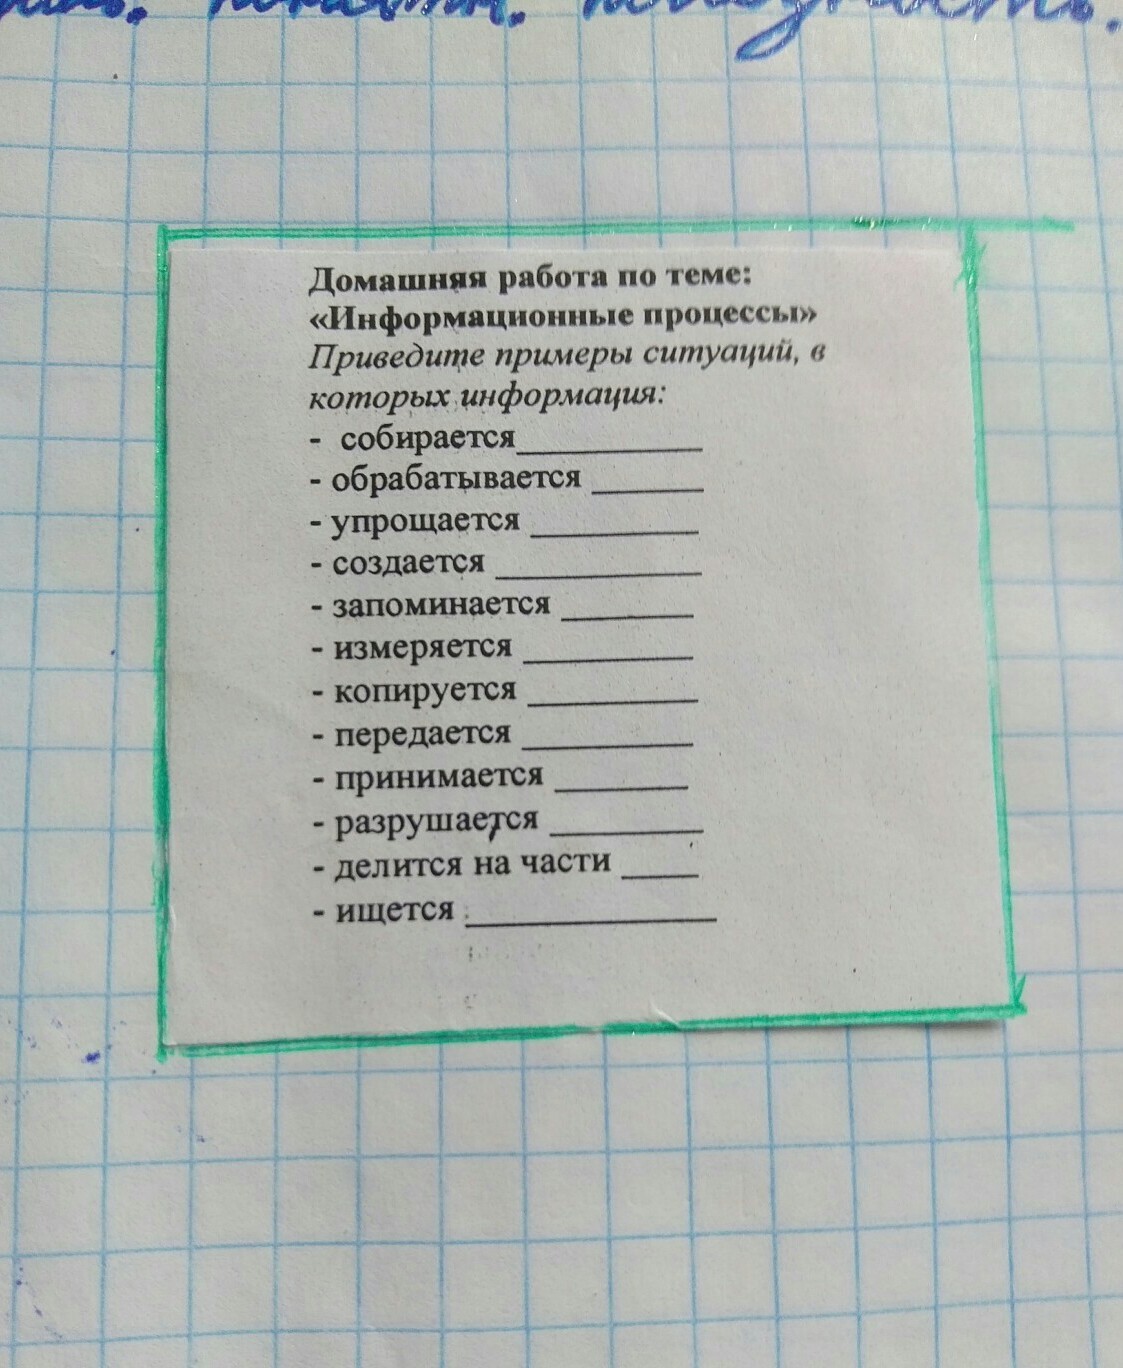 Домашняя работа по теме:
«Информационные процессы»
Приведите примеры ситуаций, в
которых информация:
- собирается____________
- обрабатывается _______
- упрощается ___________
- создается ______________
- запоминается _________
- измеряется ___________
- копируется ___________
- передается ___________
- принимается _________
- разрушается __________
- делится на части _____
- ищется _________________